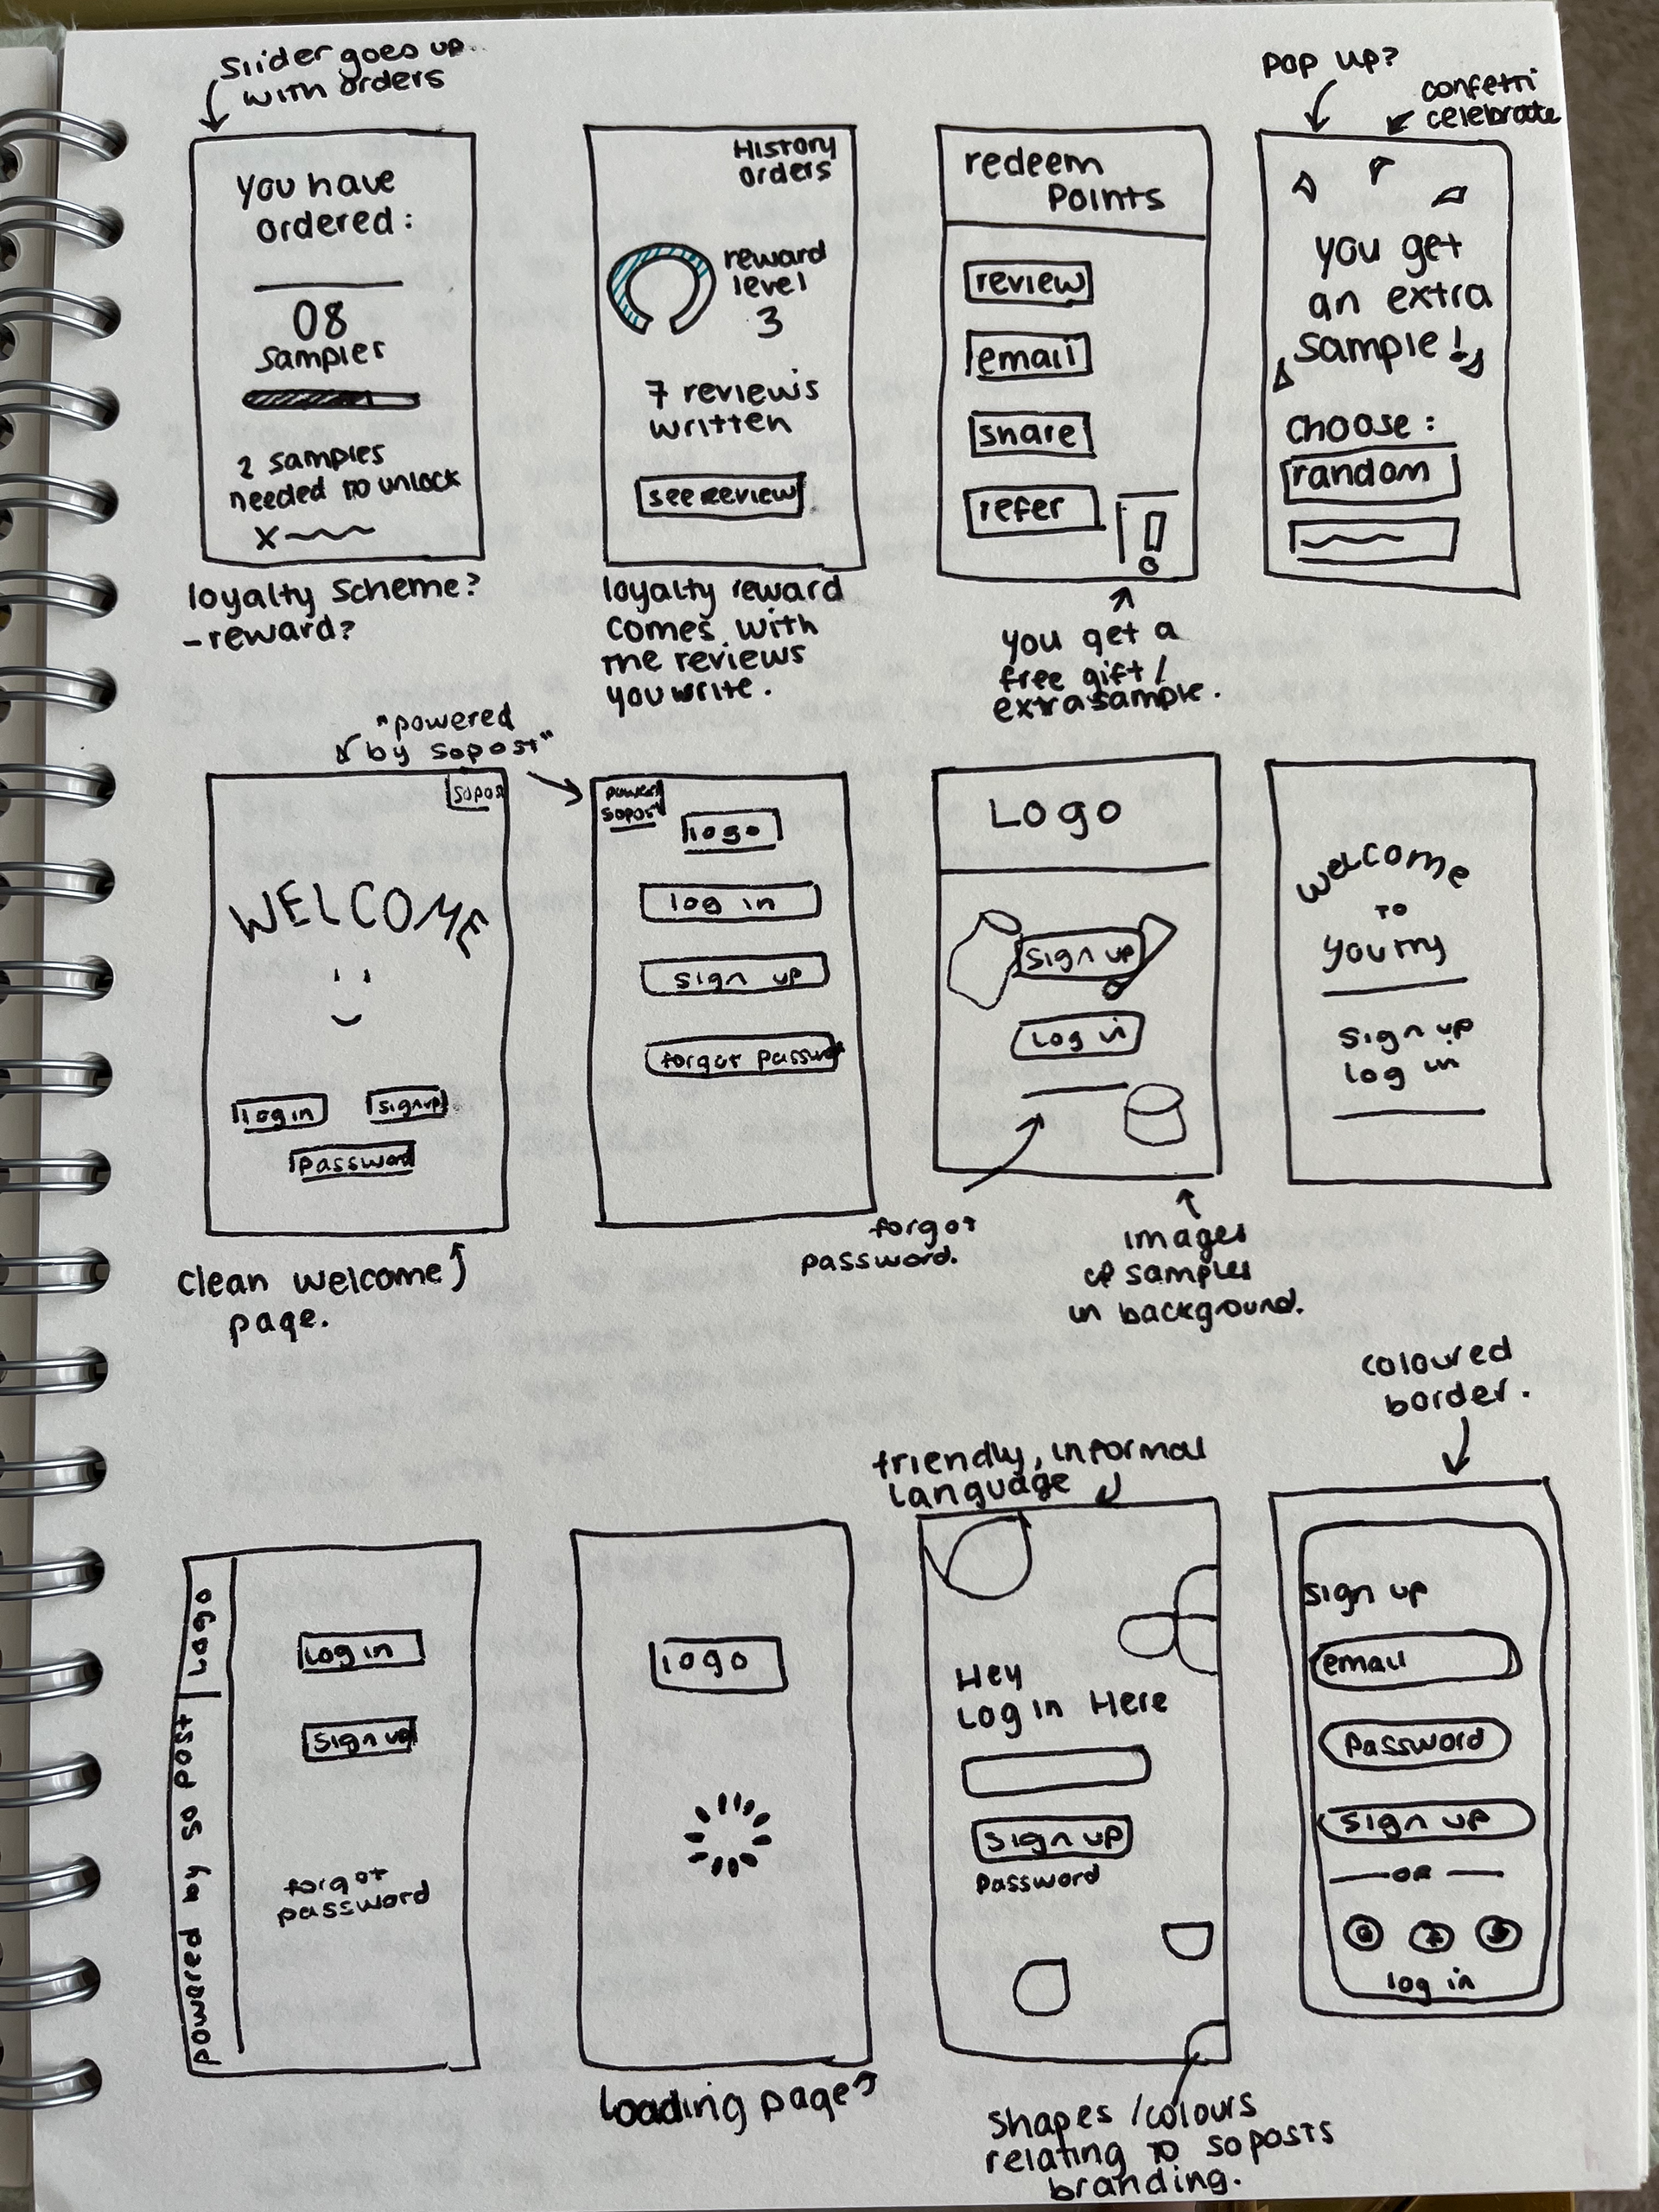 Slider goes up
with orders
You have
ordered:
08
Samples
2 samples
needed to unlock
x
loyalty scheme?
- reward?
History
orders
reward
level
3
7 reviews
written
see review
loyalty reward
comes with
the reviews
you write.
redeem
Points
review
email
share
refer
you get a
free gift /
extra sample.
Pop up?
confetti
celebrate
you get
an extra
sample!
choose:
random
"powered
by sopost"
sopost
WELCOME
log in
sign up
password
clean welcome
page.
powered
sopost
logo
log in
sign up
forgot password
Logo
sign up
Log in
forgot
password.
images
of samples
in background.
welcome
to
you try
sign up
log in
powered by so post | Logo
Log in
Sign up
forgot
password
logo
loading page
friendly, informal
language
Hey
Log in Here
sign up
Password
Shapes / colours
relating to soposts
branding.
coloured
border.
sign up
email
Password
sign up
OR
log in